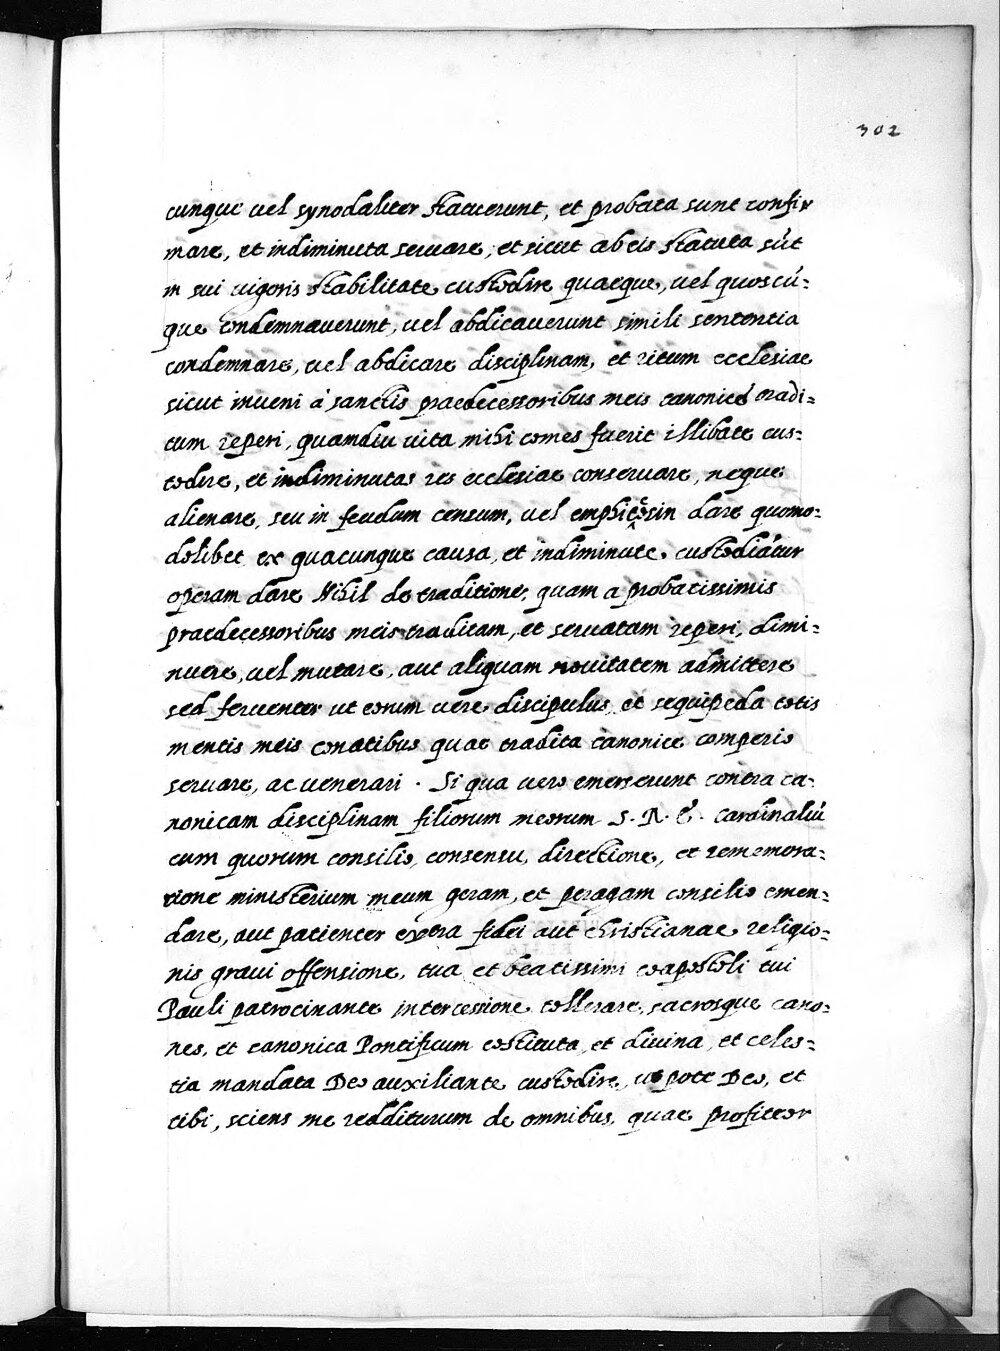 302
cunque vel synodaliter statuerunt, et probata sunt confir
mare, et indiminuta seruare, et sicut ab eis statuta sūt
in sui vigoris stabilitate custodire quaeque, vel quoscū=
que condemnauerunt, vel abdicauerunt simili sententia
condemnare, vel abdicare disciplinam, et ritum ecclesiae
sicut inueni à sanctis praedecessoribus meis canonicè tradi=
tum reperi, quamdiu uita mihi comes fuerit illibate cus=
todire, et indiminutas res ecclesiae conseruare, neque
alienare, seu in feudum censum, vel emphitosin dare quomo=
dolibet ex quacunque causa, et indiminute custodiātur
operam dare Nihil de traditione, quam a probatissimis
praedecessoribus meis traditam, et seruatam reperi, dimi=
nuere, vel mutare, aut aliquam nouitatem admittere
sed feruenter ut eorum vere discipulus, et sequipeda totis
mentis meis conatibus quae tradita canonice comperio
seruare, ac venerari. Si qua vero emerserunt contra ca=
nonicam disciplinam filiorum meorum S. R. E. Cardinaliū
cum quorum consilio, consensu, directione, et rememora=
tione ministerium meum geram, et peragam consilio emen=
dare, aut patienter extra fidei aut christianae religio=
nis graui offensione, tua et beatissimi coapostoli tui
Pauli patrocinante intercessione tollerare, sacrosque cano=
nes, et canonica Pontificum costituta, et diuina, et celes=
tia mandata Deo auxiliante custodire, utpote Deo, et
tibi, sciens me redditurum de omnibus, quae profiteor